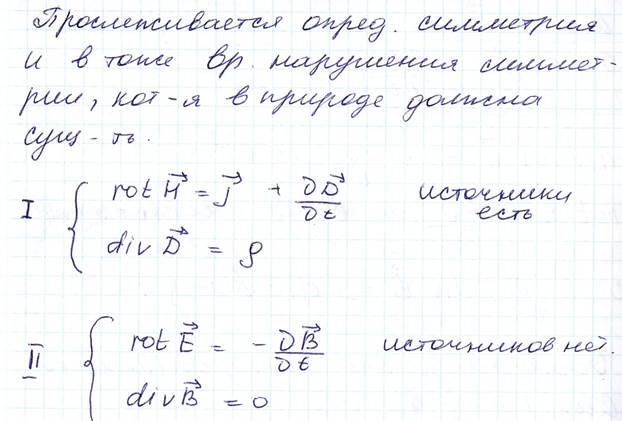 Прослеживается опред. симметрия
и в тоже вр. нарушения симмет-
рии, кот-я в природе должна
сущ-ть.
I { rot H⃗ = j⃗ + ∂D⃗/∂t источники есть
div D⃗ = ρ
II { rot E⃗ = - ∂B⃗/∂t источников нет.
div B⃗ = 0